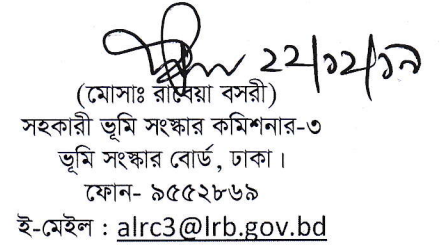 ২২/১২/১৯
(মোসাঃ রাবেয়া বসরী)
সহকারী ভূমি সংস্কার কমিশনার-৩
ভূমি সংস্কার বোর্ড, ঢাকা।
ফোন- ৯৫৫২৮৬৯
ই-মেইল : alrc3@lrb.gov.bd